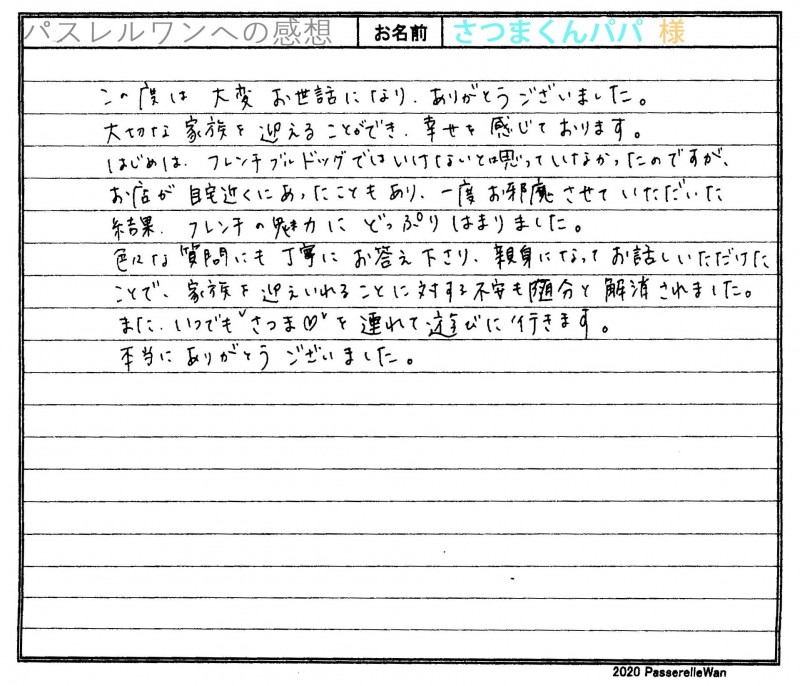 パスレルワンへの感想 お名前 さつまくんパパ 様
この度は 大変 お世話になり、ありがとうございました。
大切な 家族を 迎えることができ、幸せを 感じております。
はじめは、フレンチブルドッグではいけないとは思っていなかったのですが、
お店が 自宅近くにあったこともあり、一度 お邪魔させていただいた
結果、フレンチの魅力に どっぷりはまりました。
色々な 質問にも 丁寧に お答え下さり、親身になってお話しいただけた
ことで、家族を 迎えいれることに対する不安も随分と 解消されました。
また、いつでも"さつま♡"を 連れて遊びに行きます。
本当にありがとう ございました。
2020 PasserelleWan